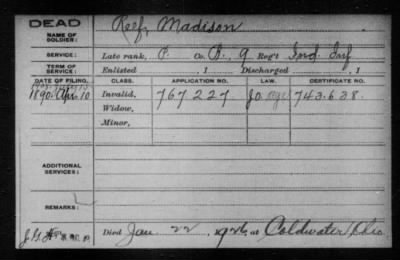 DEAD
NAME OF SOLDIER: Reef, Madison
SERVICE: Late rank, P. Co. B, 9 Reg't Ind. Inf
TERM OF SERVICE: Enlisted , 1 Discharged , 1
DATE OF FILING. CLASS. APPLICATION NO. LAW. CERTIFICATE NO.
1890. Apr. 10 Invalid, 767227 743.638
Widow,
Minor,
ADDITIONAL SERVICES:
REMARKS:
Died Jan. 22, 1926, at Coldwater, Ohio